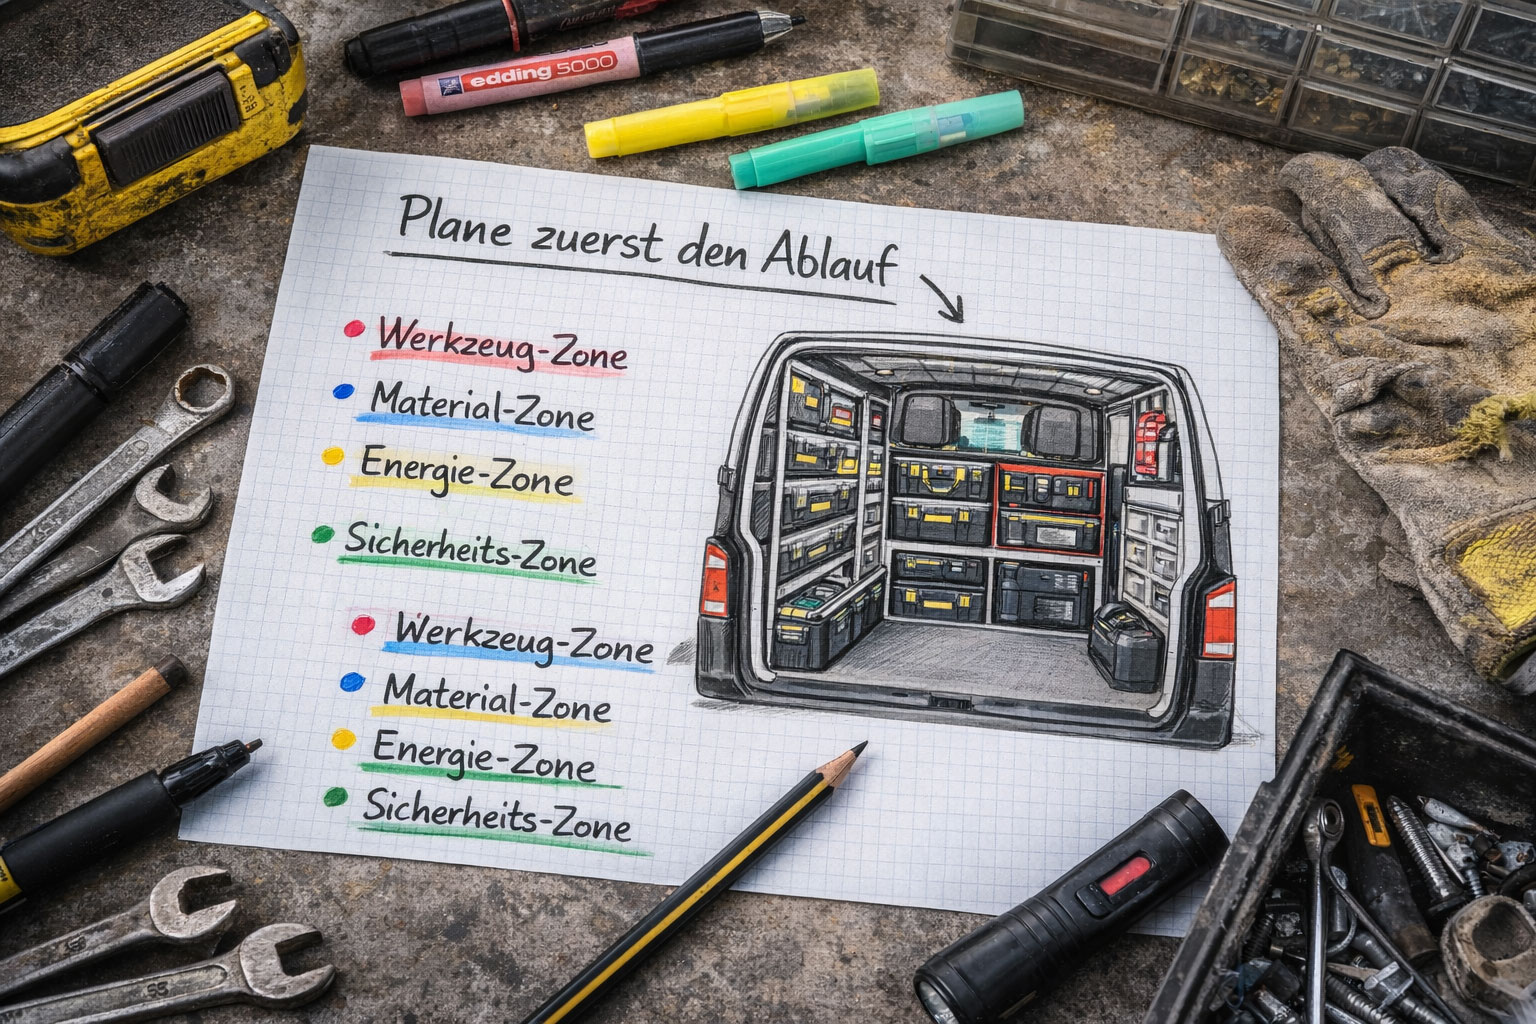 edding 5000
Plane zuerst den Ablauf
Werkzeug-Zone
Material-Zone
Energie-Zone
Sicherheits-Zone
Werkzeug-Zone
Material-Zone
Energie-Zone
Sicherheits-Zone